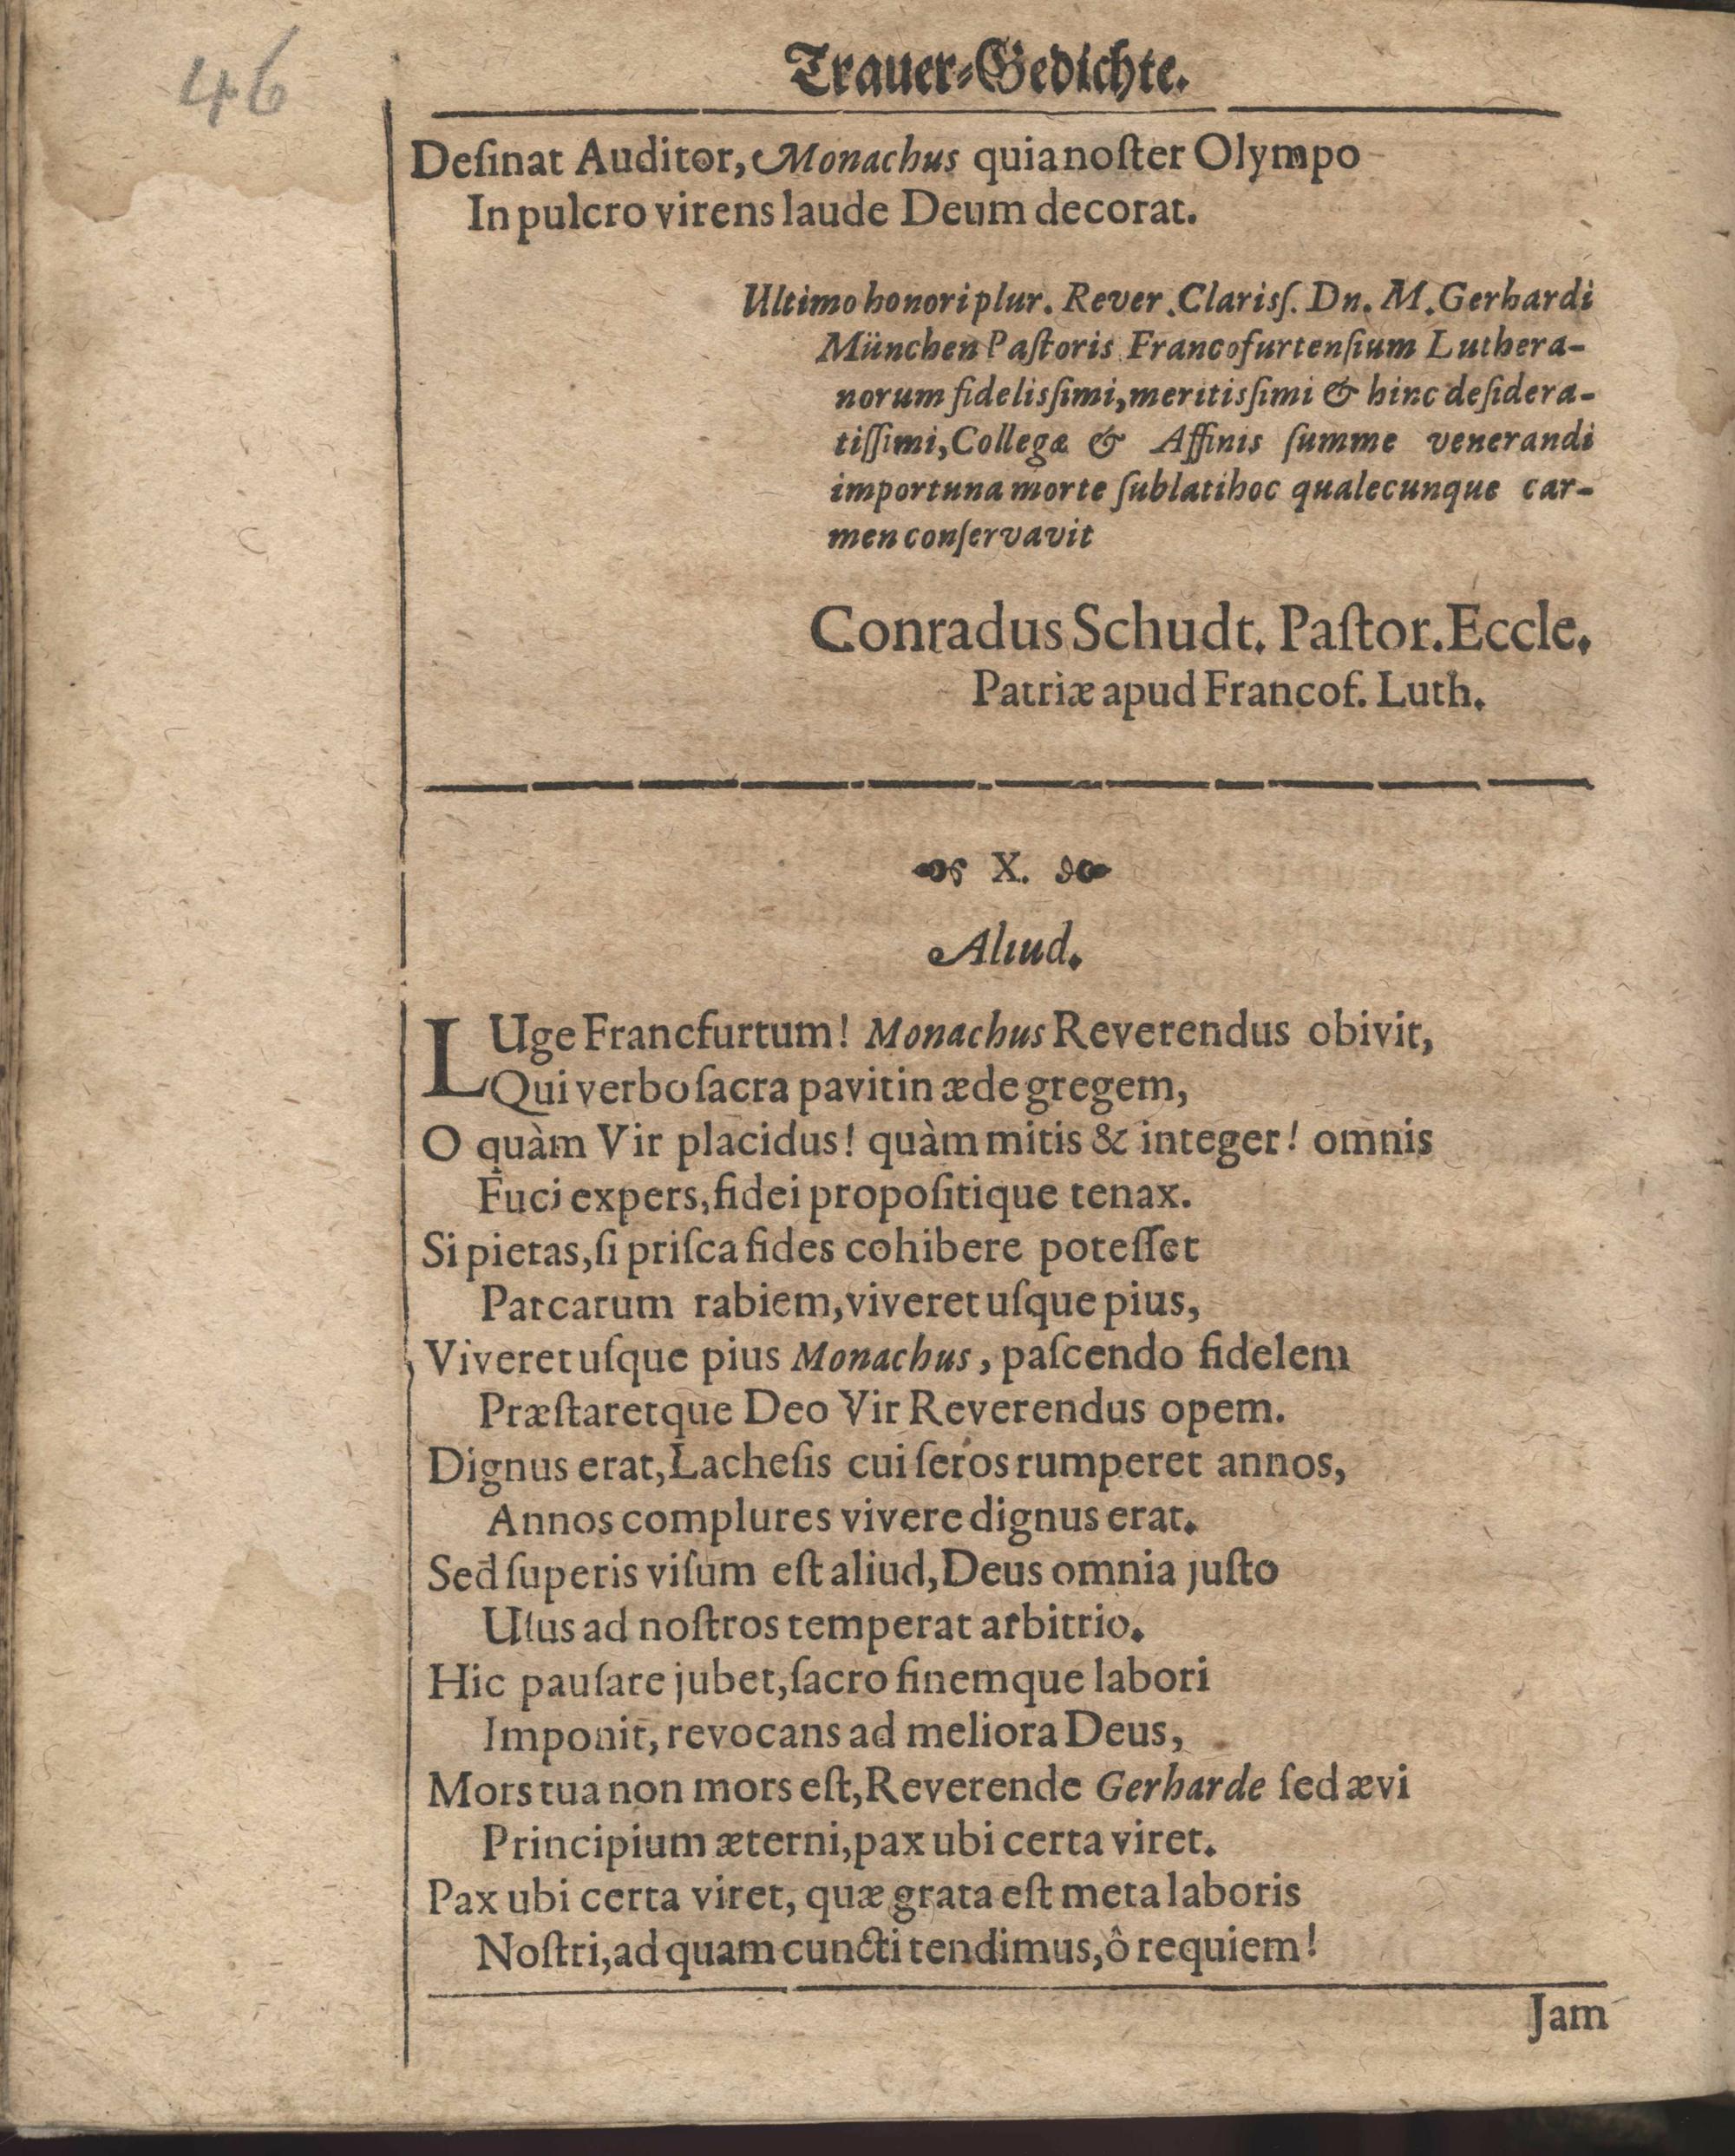 46
Trauer-Gedichte.
Deſinat Auditor, Monachus quia noſter Olympo
In pulcro virens laude Deum decorat.
Ultimo honori plur. Rever. Clariſſ. Dn. M. Gerhardi
München Paſtoris Francofurtenſium Luthera-
norum fidelisſimi, meritisſimi & hinc deſidera-
tiſſimi, Collegæ & Affinis ſumme venerandi
importuna morte ſublati hoc qualecunque car-
men conſervavit
Conradus Schudt. Paſtor. Eccle.
Patriæ apud Francof. Luth.
X.
Aliud.
LUge Francfurtum! Monachus Reverendus obivit,
Qui verbo ſacra pavit in æde gregem,
O quàm Vir placidus! quàm mitis & integer! omnis
Fuci expers, fidei propoſitique tenax.
Si pietas, ſi priſca fides cohibere poteſſet
Parcarum rabiem, viveret uſque pius,
Viveret uſque pius Monachus, paſcendo fidelem
Præſtaretque Deo Vir Reverendus opem.
Dignus erat, Lacheſis cui ſeros rumperet annos,
Annos complures vivere dignus erat.
Sed ſuperis viſum eſt aliud, Deus omnia juſto
Uſus ad noſtros temperat arbitrio.
Hic pauſare jubet, ſacro finemque labori
Imponit, revocans ad meliora Deus,
Mors tua non mors eſt, Reverende Gerharde ſed ævi
Principium æterni, pax ubi certa viret.
Pax ubi certa viret, quæ grata eſt meta laboris
Noſtri, ad quam cuncti tendimus, ô requiem!
Jam